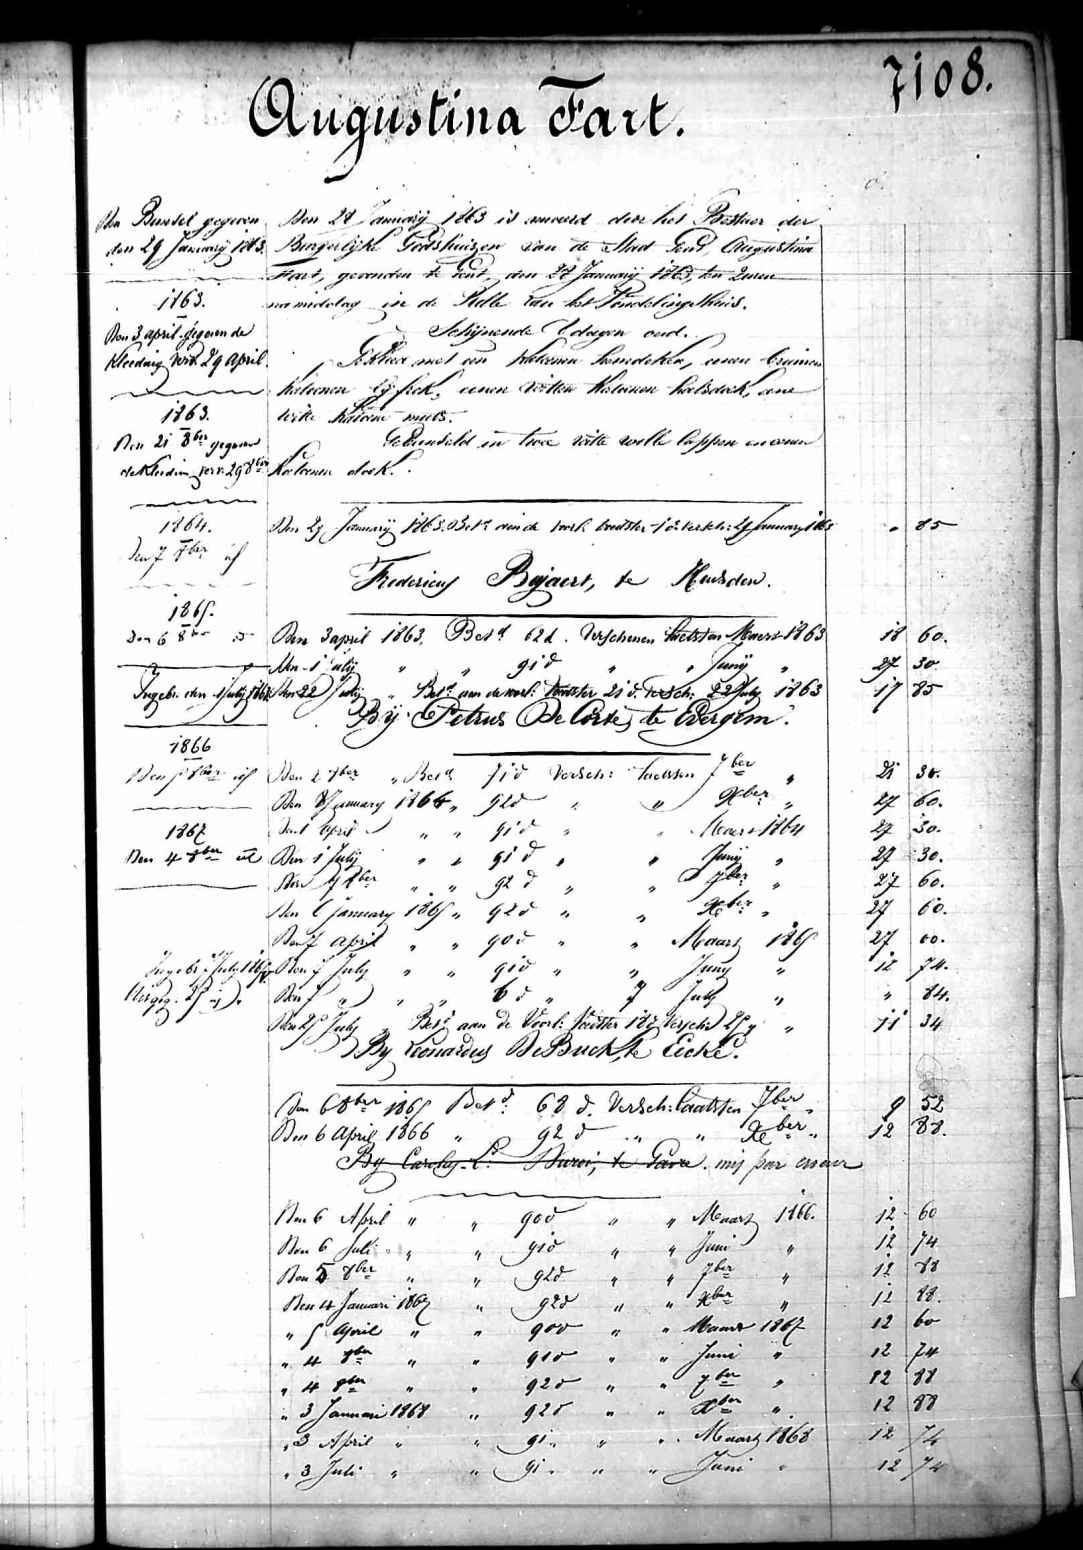 7108.
Augustina Fart.
Den Bundel gegeven
den 29 January 1863.
1863.
Den 3 april gegeven de
Kleeding verv. 29 April.
1863.
Den 21 8ber gegeven
de kleeding verv. 29 8ber
1864.
den 7 8ber id
1865.
den 6 8ber id
Ingebr. den 1 July 186
1866
Den 5 8ber id
1867
Den 4 8ber id
Ingebr. 7 July 1865
Den 28 January 1863 is aenveerd door het Bestuer der
Burgerlijke Godshuizen van de Stad Gent, Augustina
Fart, gevonden te Gent, den 28 January 1863, ten 2 uren
namiddag in de Rolle van het Vondelingshuis.
Schijnende 8 dagen oud.
Gekleed met een katoenen hemdeken, eenen bruinen
katoenen lijfrok, eenen witten katoenen halsdoek, eene
witte katoene muts.
Gebundeld in twee witte wolle lappen en eenen
katoenen doek.
Den 29 January 1863. Bet. aan de voorl. voedster 1 d. versch: 29 January 1863 " 85
Fredericus Bijaert, te Heusden.
Den 3 april 1863. Betd 62 d. Verschenen laetsten Maert 1863 18 60.
Den 1 July " " 91 d " " Junij " 27 30
Den 22 July " Betd aan de voorl: voedster 21 d. versch: 22 July 1863 17 85
Bij Petrus De Corte, te Evergem.
Den 2 8ber " Betd 71 d versch: laetsten 7ber " 21 30.
Den 8 January 1864 " 92 d " " Xber " 27 60.
Den 1 April " " 91 d " " Maert 1864 27 30.
Den 1 July " " 91 d " " Junij " 27 30.
Den 7 8ber " " 92 d " " 7ber " 27 60.
Den 6 January 1865 " 92 d " " Xber " 27 60.
Den 7 April " " 90 d " " Maart 1865 27 00.
Den 7 July " " 91 d " " Juny " 12 74.
Den 7 " " " 6 d " 7 July " " 84.
Den 25 July " Betd aan de Voorl: Voedster 18 d versch: 25 " " 11 34
By Leonardus De Buck, te Eecke.
Den 6 8ber 1865 Betd: 68 d. Versch: laatsten 7ber " 9 52
Den 6 April 1866 " 92 d " " Xber " 12 88.
By Carolus L. te Gavre. mis par erreur
Den 6 April " " 90 d " " Maart 1866. 12 60
Den 6 Juli " " 91 d " " Juni " 12 74
Den 5 8ber " " 92 d " " 7ber " 12 88
Den 4 Januari 1867 " 92 d " " Xber " 12 88.
" 5 April " " 90 d " " Maart 1867 12 60
" 4 8ber " " 91 d " " Juni " 12 74
" 4 8ber " " 92 d " " 7ber " 12 88
" 3 Januari 1868 " 92 d " " Xber " 12 88
" 3 April " " 91 " " " Maart 1868 12 74
" 3 Juli " " 91 " " " Juni " 12 74